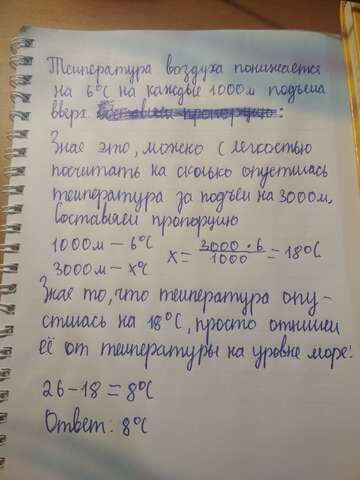 Температура воздуха понижается
на 6°C на каждые 1000м подъёма
вверх. Составим пропорцию:
Зная это, можно с лёгкостью
посчитать на сколько опустилась
температура за подъём на 3000м.
Составляем пропорцию
1000м – 6°C
3000м – x°C
x = 3000 • 6 / 1000 = 18°C
Зная то, что температура опу-
стилась на 18°C, просто отнимем
её от температуры на уровне моря:
26-18 = 8°C
Ответ: 8°C